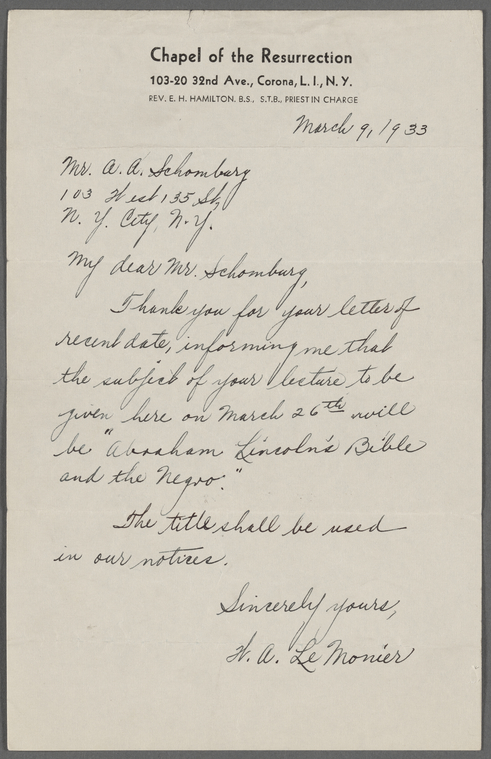 Chapel of the Resurrection
103-20 32nd Ave., Corona, L. I., N. Y.
REV. E. H. HAMILTON. B.S., S.T.B., PRIEST IN CHARGE
March 9, 1933
Mr. A. A. Schomburg
103 West 135 St,
N. Y. City, N. Y.
My dear Mr. Schomburg,
Thank you for your letter of
recent date, informing me that
the subject of your lecture to be
given here on March 26th will
be "Abraham Lincoln's Bible
and the Negro."
The title shall be used
in our notices.
Sincerely yours,
H. A. Le Monier